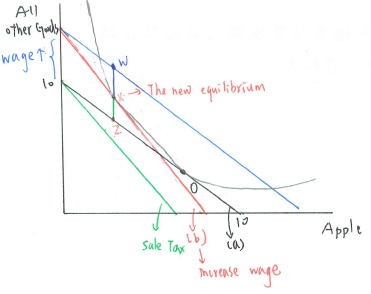 All
other Goods
wage↑
W
X → The new equilibrium
10
Z
O
10
Apple
sale Tax
(b)
(a)
increase wage